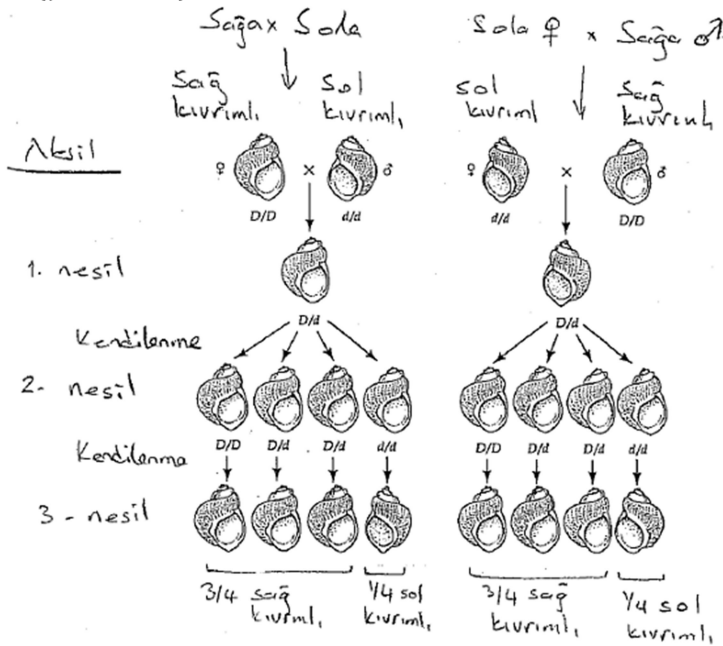 Sağa x Sola
Sola ♀ x Sağa ♂
Sağ kıvrımlı
Sol kıvrımlı
sol kıvrıml
Sağ kıvrımlı
Nesil
♀ × ♂
♀ × ♂
D/D d/d
d/d D/D
1. nesil
D/d
D/d
Kendilenme
2- nesil
D/D D/d D/d d/d
D/D D/d D/d d/d
Kendilenme
3- nesil
3/4 sağ kıvrımlı
1/4 sol kıvrımlı
3/4 sağ kıvrımlı
1/4 sol kıvrımlı